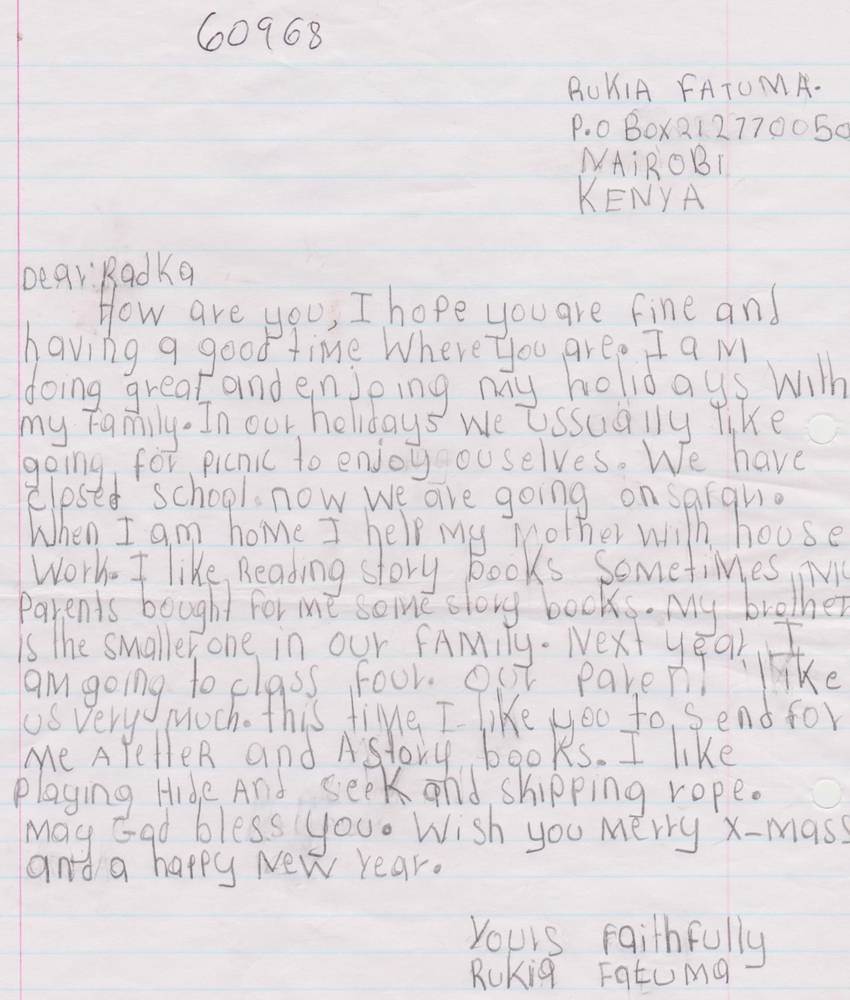 60968
RUKIA FATUMA.
P.O BOX 21277 0050
NAiROBI
KENYA
Dear: Radka
How are you, I hope you are fine and
having a good time Where you are. I aM
doing great and enjoing my holidays With
my family. In our holidays we ussually like
going for picnic to enjoy ouselves. We have
closed school. now we are going on safari.
When I am home I help my Mother with house
Work. I like Reading story books Sometimes My
Parents bought for me some story books. My brother
is the smaller one in our fAMily. Next year I
am going to class four. Our parent like
us very much. this time I like you to send for
Me A letteR and A Story books. I like
playing Hide And seek and skipping rope.
May God bless you. Wish you Merry X-mass
and a happy New Year.
Yours faithfully
Rukia Fatuma